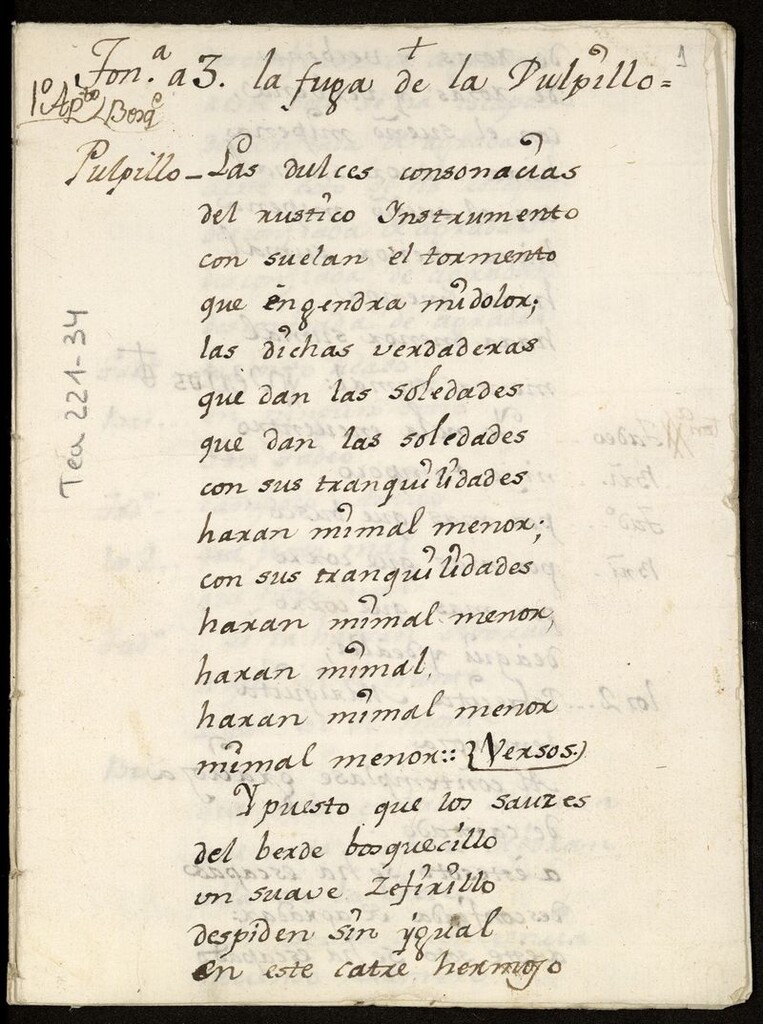 + 1
Ton.ª a 3. la fuga de la Pulpillo=
1º Apto Bosqe
Pulpillo - Las dulces consonacias
del rustico Instrumento
con suelan el tormento
que engendra midolor;
las dichas verdaderas
que dan las soledades
que dan las soledades
con sus tranquilidades
haran mimal menor;
con sus tranquilidades
haran mimal menor,
haran mimal,
haran mimal menor
mimal menor:: (Versos.)
Ypuesto que los sauzes
del berde bosquecillo
un suave Zefirillo
despiden sin ygual
en este catre hermoso
Tea 221-34